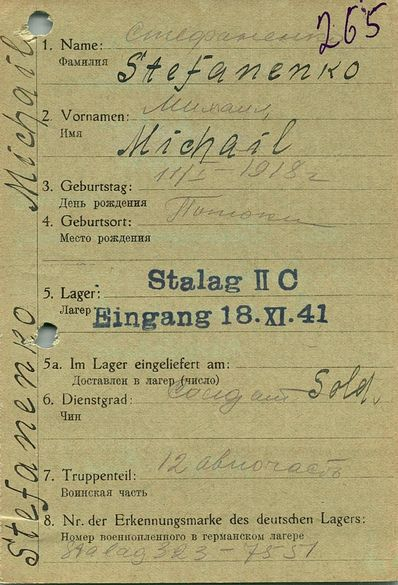 265
Stefanenko Michail
1. Name: Стефаненко
Фамилия
Stefanenko
2. Vornamen: Михаил
Имя
Michail
3. Geburtstag: 11/I-1918 г
День рождения
4. Geburtsort:
Место рождения
Stalag II C
5. Lager:
Лагерь
Eingang 18.XI.41
5a. Im Lager eingeliefert am:
Доставлен в лагер (число)
6. Dienstgrad: Солдат Sold.
Чин
7. Truppenteil: 12 авиочасть
Воинская часть
8. Nr. der Erkennungsmarke des deutschen Lagers:
Номер военнопленного в германском лагере
Stalag 323 - 7551